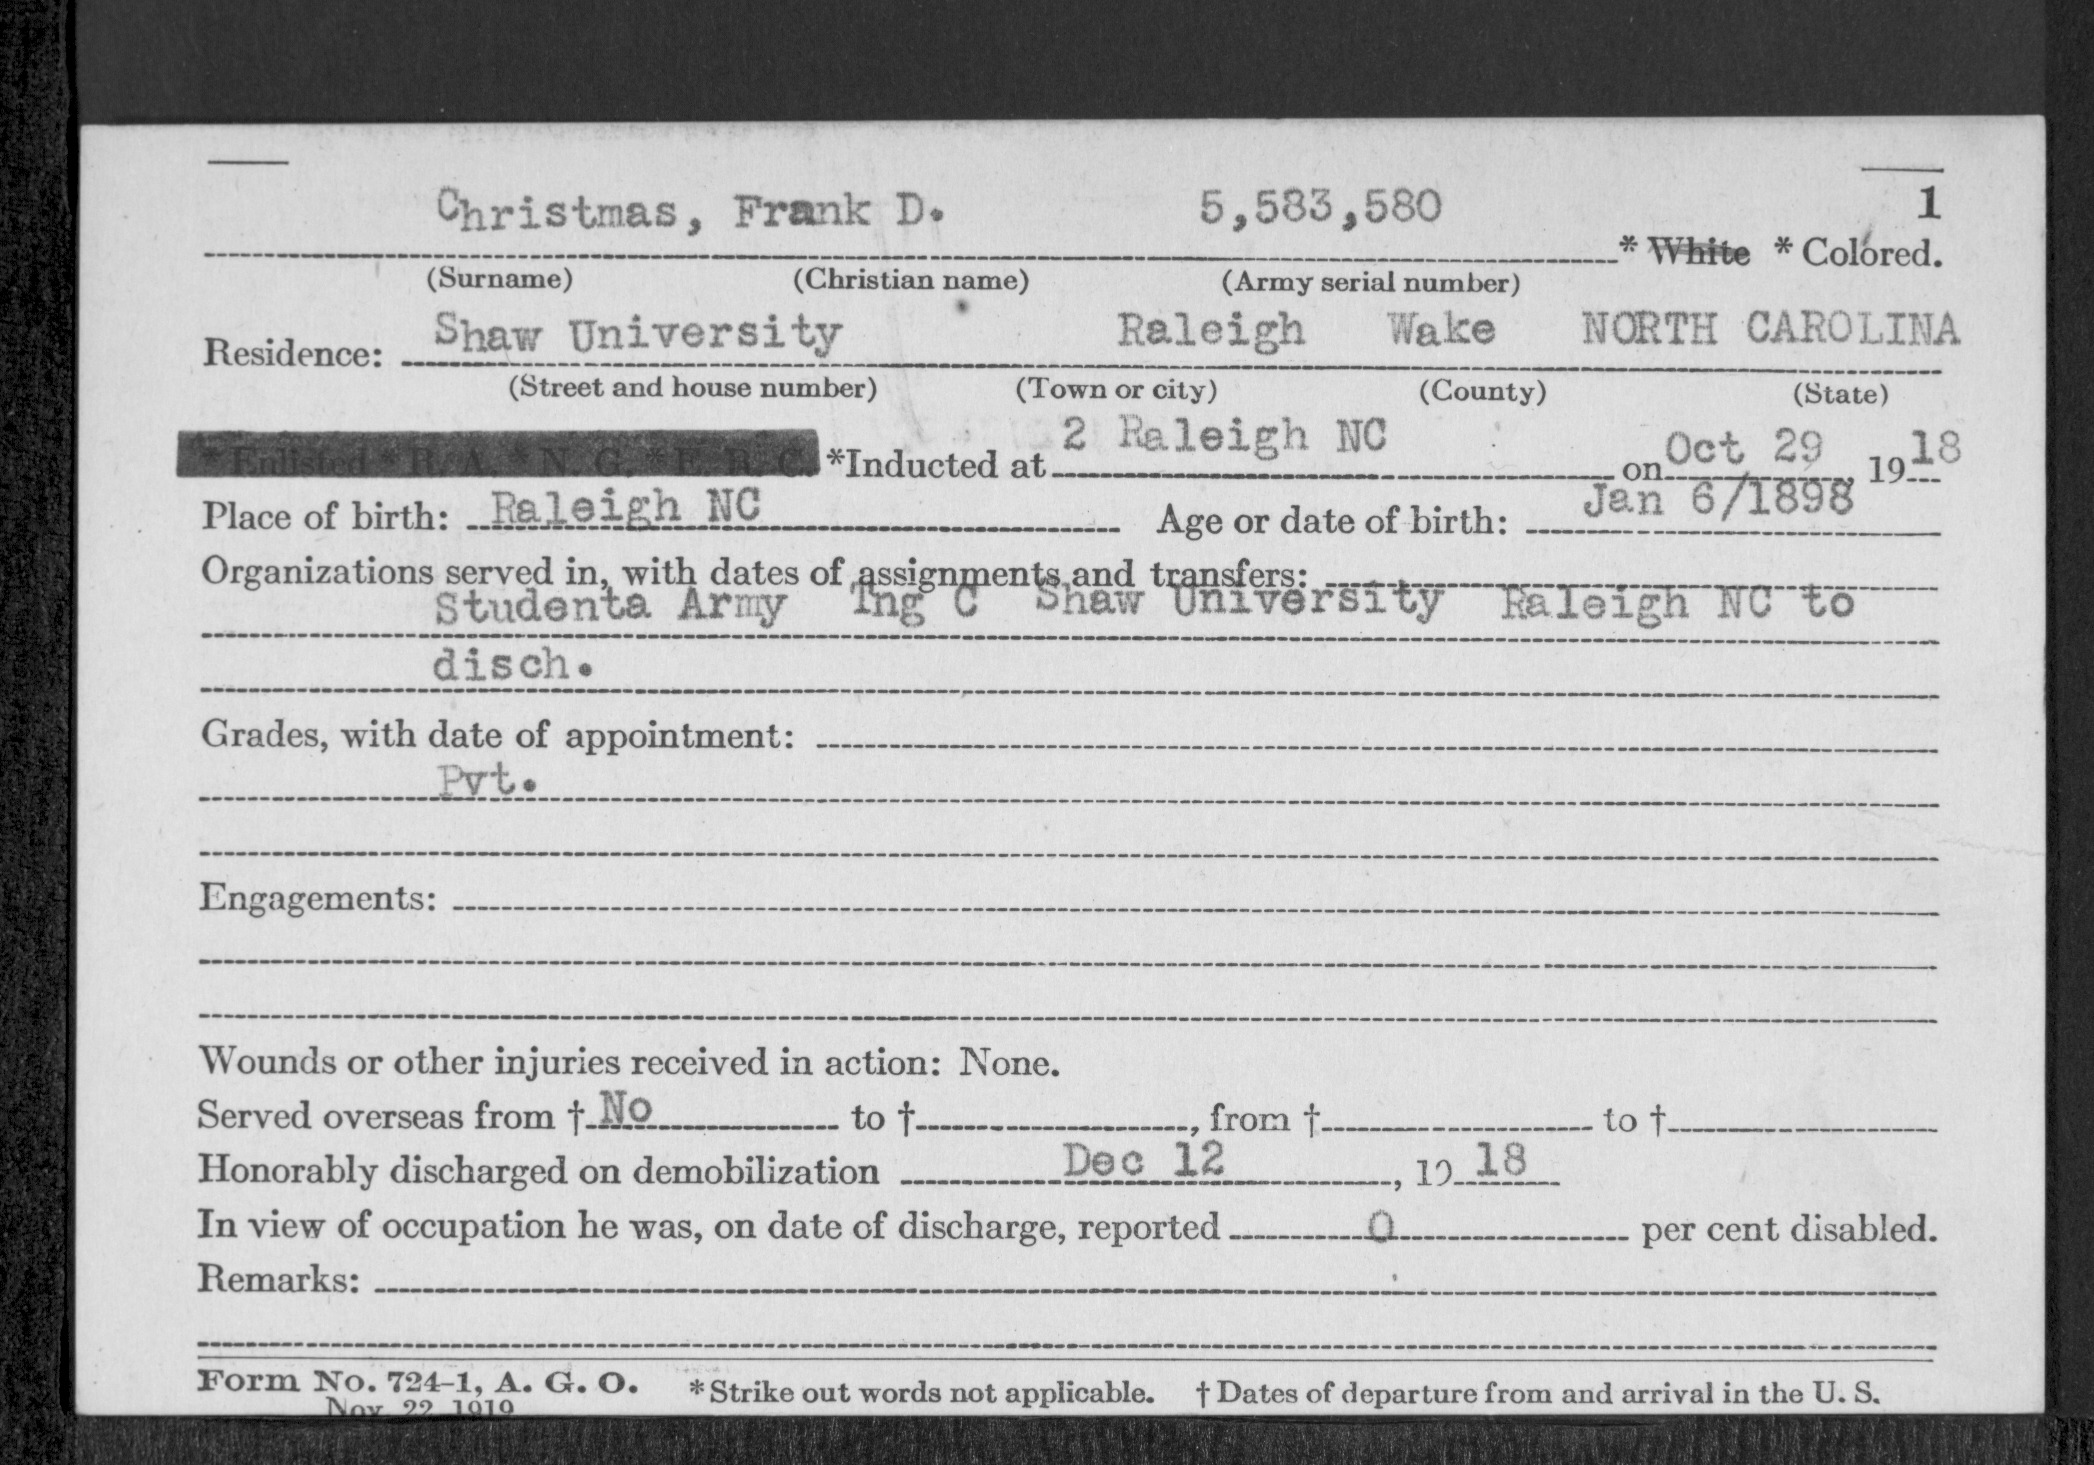 Christmas, Frank D. 5,583,580 1
* White * Colored.
(Surname) (Christian name) (Army serial number)
Residence: Shaw University Raleigh Wake NORTH CAROLINA
(Street and house number) (Town or city) (County) (State)
* Enlisted * R. A. * N. G. * E. R. C. *Inducted at 2 Raleigh NC on Oct 29, 1918
Place of birth: Raleigh NC Age or date of birth: Jan 6/1898
Organizations served in, with dates of assignments and transfers:
Studenta Army Tng C Shaw University Raleigh NC to
disch.
Grades, with date of appointment:
Pvt.
Engagements:
Wounds or other injuries received in action: None.
Served overseas from † No to †, from † to †
Honorably discharged on demobilization Dec 12, 19 18
In view of occupation he was, on date of discharge, reported 0 per cent disabled.
Remarks:
Form No. 724-1, A. G. O. * Strike out words not applicable. † Dates of departure from and arrival in the U. S.
Nov. 22, 1919